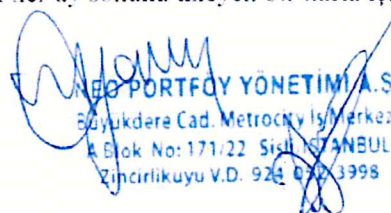 NEO PORTFÖY YÖNETİMİ A.Ş
Büyükdere Cad. Metrocity İş Merkez
A Blok No: 171/22 Şişli İSTANBUL
Zincirlikuyu V.D. 3998